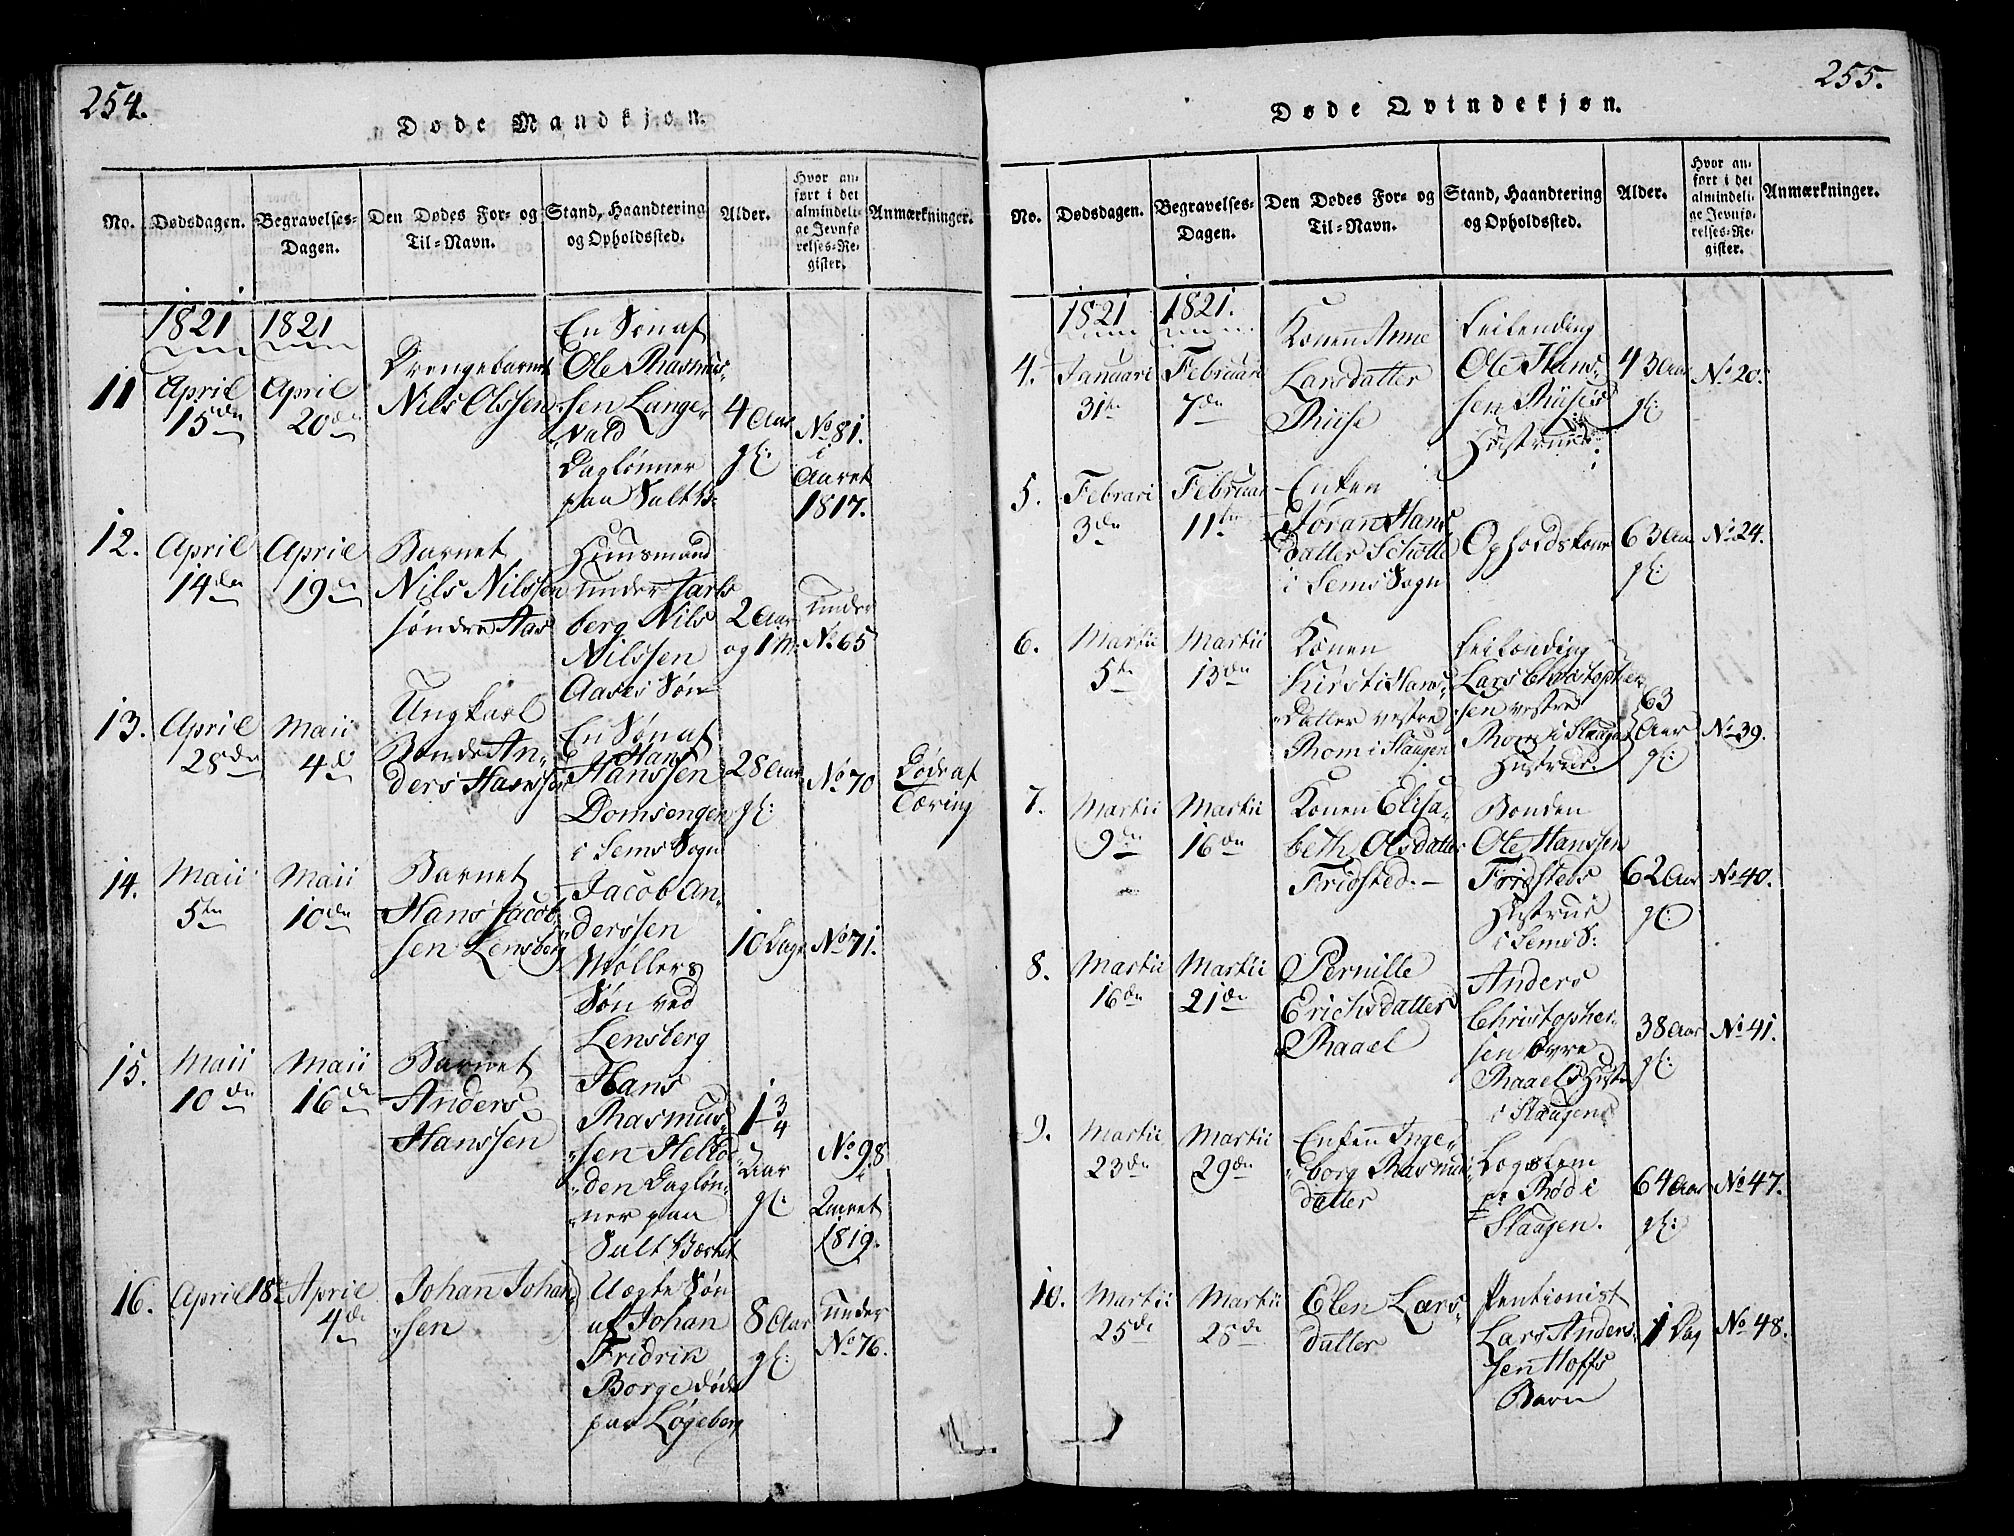 254.
Døde Mandkjøn.
No.
Dødsdagen.
Begravelses-
Dagen.
Den Dødes For- og
Til-Navn.
Stand, Haandtering
og Opholdssted.
Alder.
Hvor an-
ført i det
almindeli-
ge Jevnfø-
relses-Re-
gister.
Anmærkninger.
1821
1821
11
April
15den
April
20de
Drengebarnet
Nils Olssen
En Søn af
Ole Rasmus-
sen Lange-
vald
Dagløнner
paa Saltv.
4 Aar
gl:
No 81.
i
Aaret
1817.
12.
April
14den
April
19de
Barnet
Nils Nilssen
søndre Aas
Huusmand
under Jarls
berg Nils
Nilssen
Aases Søn
2 Aar
og 1 M:
under
No 65
13.
April
28de
Maii
4de
Ungkarl
Bonde An-
ders Hanssen
En Søn af
Hans
Hanssen
Domsengen
i Sems Sogn
28 Aar
gl:
No 70
Døde af
Tæring
14.
Maii
5te
Maii
10de
Barnet
Hans Jacob-
sen Lensberg
Jacob An-
derssen
Møllers
Søn ved
Lensberg
10 Dage
No 71.
15.
Maii
10de
Maii
16de
Barnet
Anders
Hanssen
Hans
Rasmus-
sen
den Dagløn-
ner paa
Salt Værket
1 3/4
Aar
gl:
No 98
i
Aaret
1819.
16.
April 18
April
4de
Johan Johan-
sen
Uægte Søn
af Johan
Fridrik
Borge døde
paa Løgeberg
8 Aar
gl:
under
No 76.
255.
Døde Qvindekjøn.
No.
Dødsdagen.
Begravelses-
Dagen.
Den Dødes For- og
Til-Navn.
Stand, Haandtering
og Opholdssted.
Alder.
Hvor an-
ført i det
almindeli-
ge Jevnfø-
relses-Re-
gister.
Anmærkninger.
1821
1821.
4.
Januari
31te
Februari
7de
Konen Anne
Larsdatter
Riise
Leilending
Ole Hans-
sen Riises
Hustrue.
43 Aar
gl:
No 20.
5.
Febrari
3de
Februari
11te
Enken
Jøran Hans
datter Schotte
i Sems Sogn
Opholdskone
63 Aar
gl:
No 24.
6.
Martii
5te
Martii
13de
Konen
Kirsti Hans-
datter vestre
Rom i Slaugen
Leilending
Lars Christopher
sen vestre
Rom i Slaugen
Hustrue.
63
Aar
gl:
No 39.
7.
Martii
9de
Martii
16de
Konen Elisa-
beth Olsdatter
Fridsted.
Bonden
Ole Hanssen
Fridsteds
Hustrue
i Sems S:
62 Aar
gl:
No 40.
8.
Martii
16de
Martii
21de
Pernille
Erichsdatter
Raael
Anders
Christopher-
sen Øvre
Raaels Hustr
i Slaugen
38 Aar
gl:
No 41.
9.
Martii
23de
Martii
29de
Enken Inge-
borg Rasmus-
datter
Lægslem
pr Rød i
Slaugen.
64 Aar
gl:
No 47.
10.
Martii
25de
Martii
28de
Elen Lars-
datter
Pentionist
Lars Anders-
sen Hoffs
Barn
1 Dag
No 48.